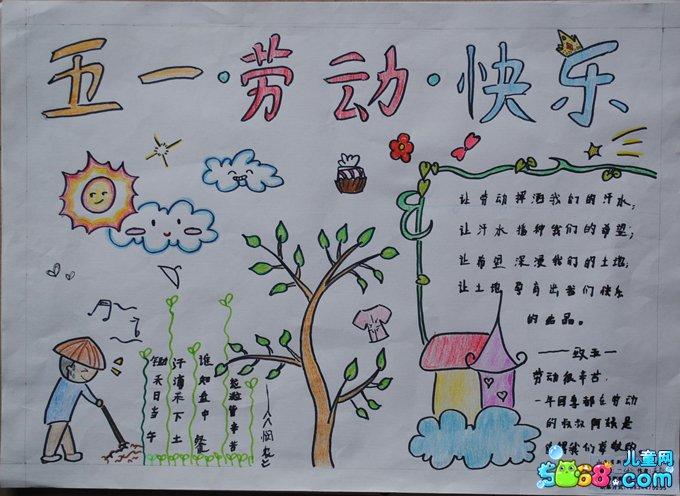 五一·劳动·快乐
让劳动挥洒我们的汗水;
让汗水播种我们的希望;
让希望深浸我们的土地;
让土地孕育出我们快乐
的出品。
——致五一
劳动最辛苦,
一年四季都在劳动
的叔叔阿姨是
值得我们尊敬的
锄禾日当午
汗滴禾下土
谁知盘中餐
粒粒皆辛苦
——《悯农》
儿童网
5068.com